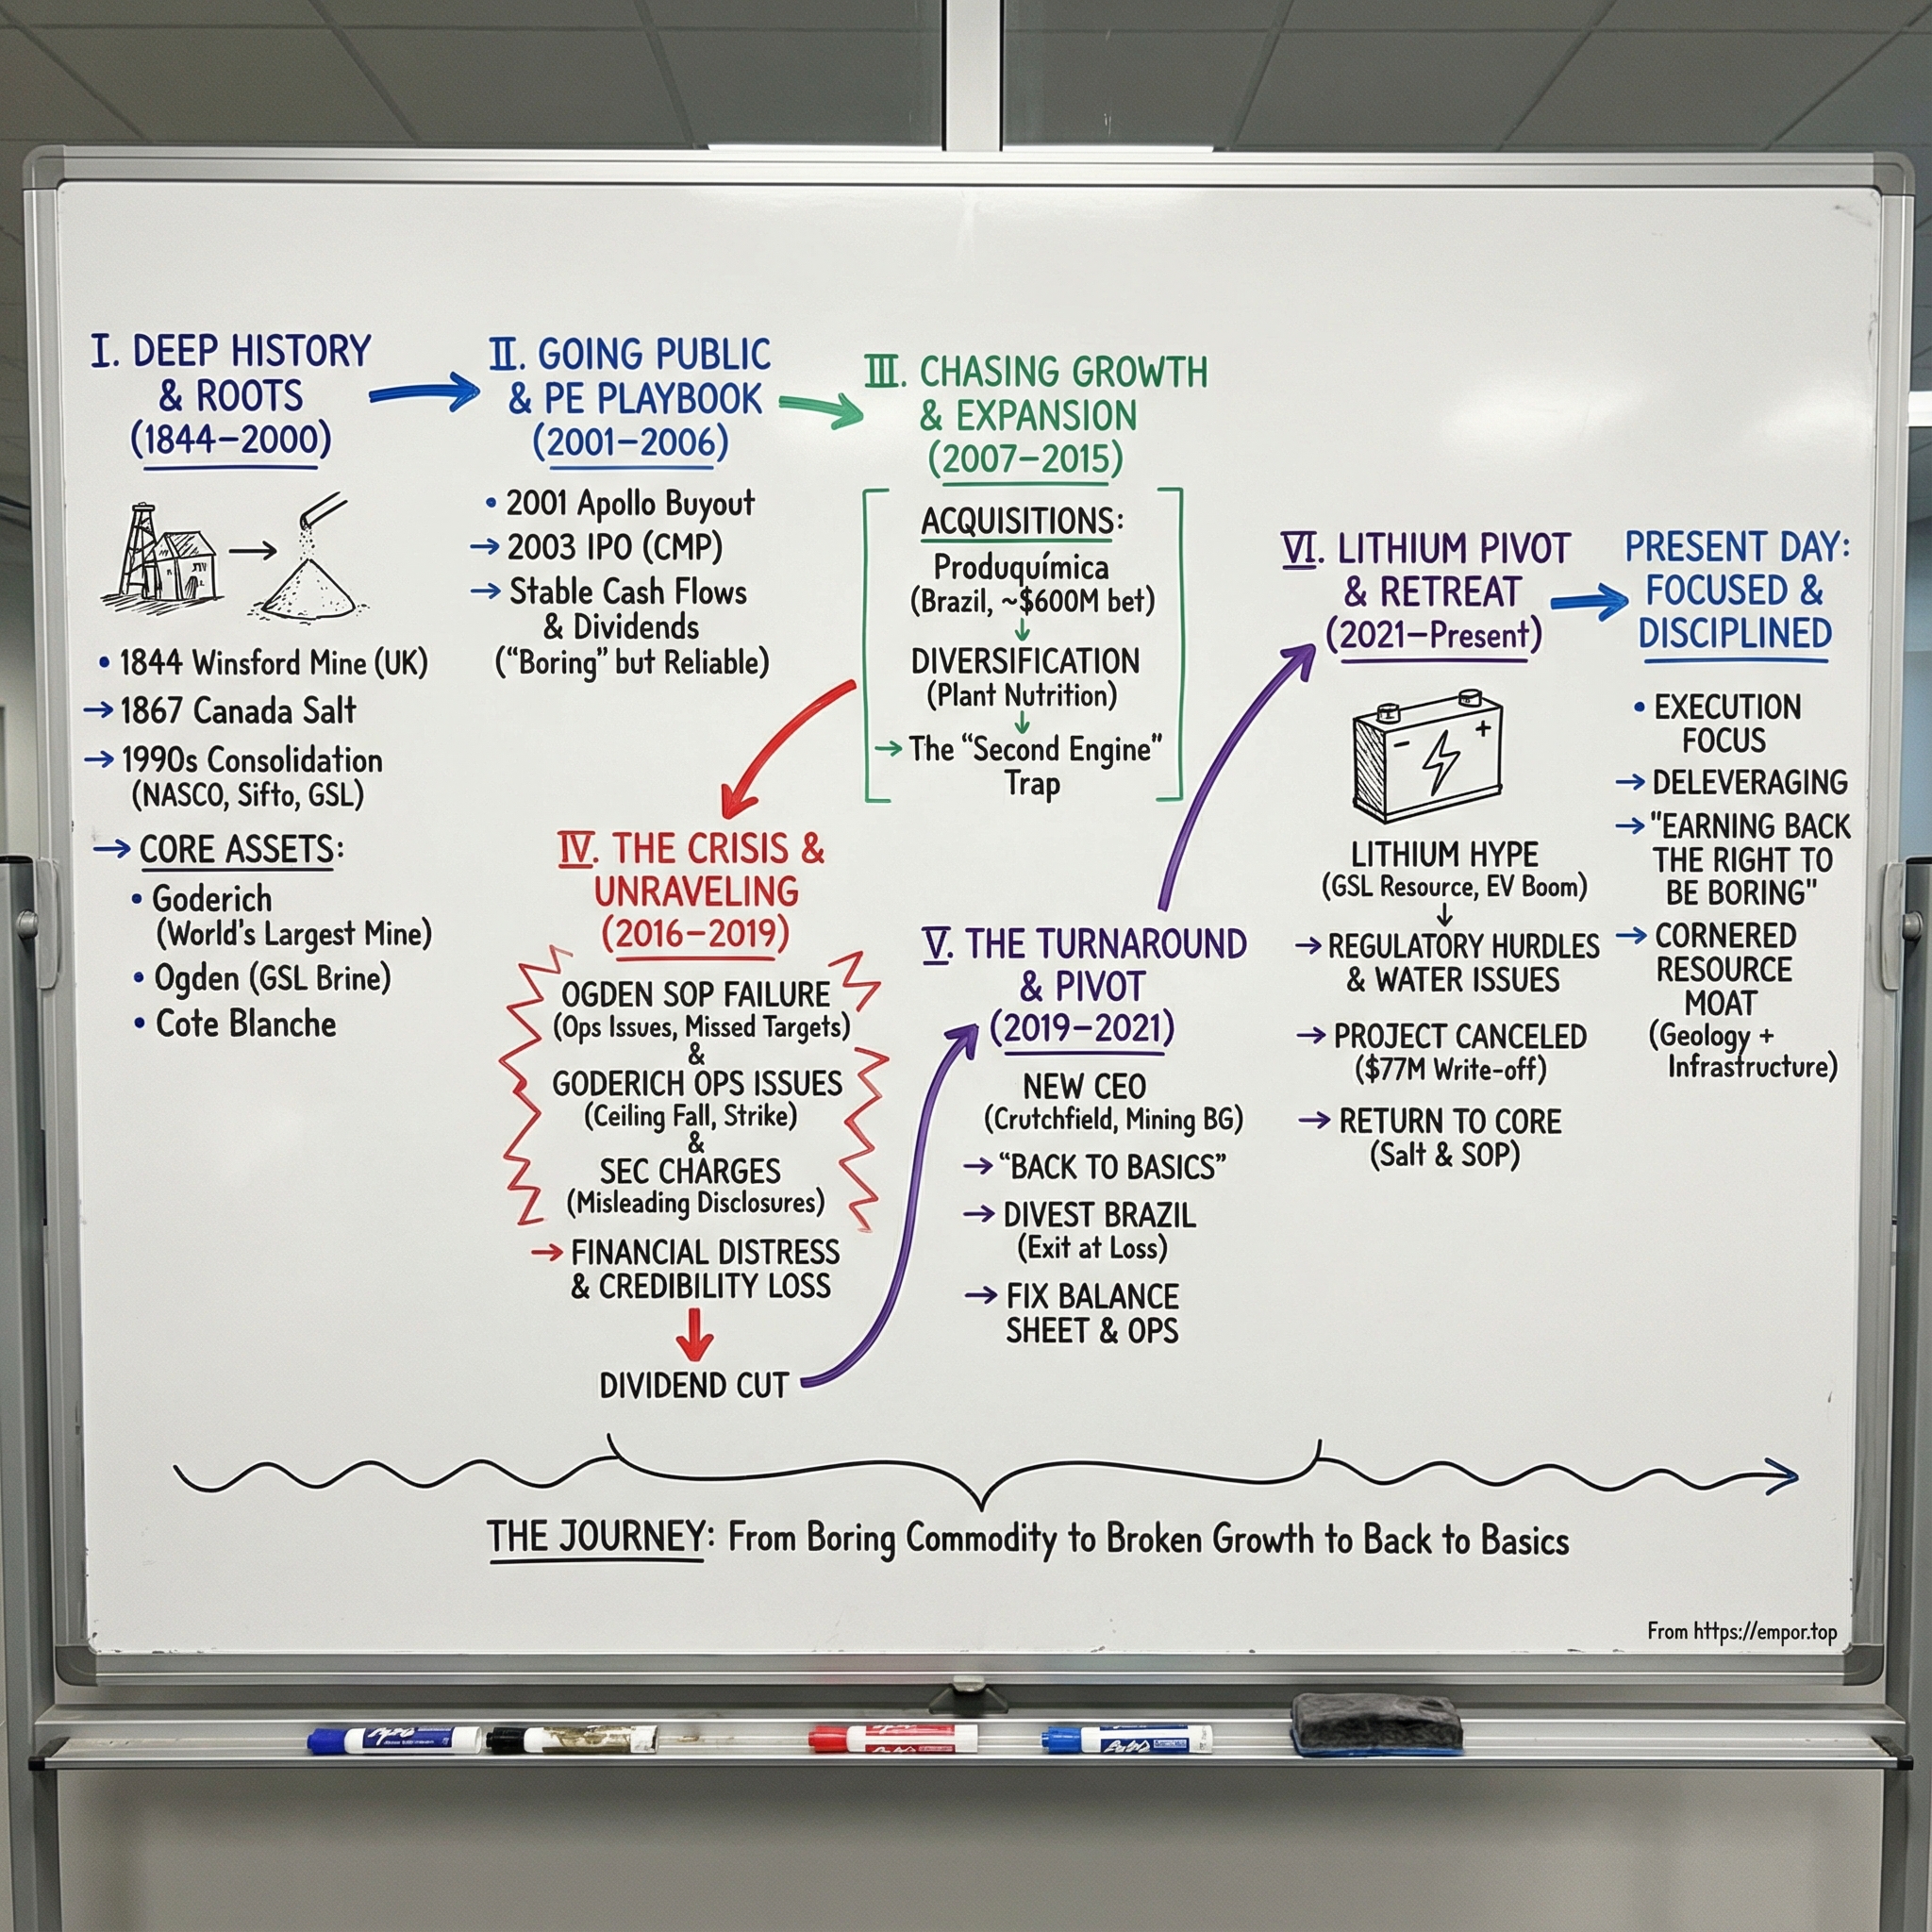 I. DEEP HISTORY
& ROOTS
(1844–2000)
• 1844 Winsford Mine (UK)
→ 1867 Canada Salt
→ 1990s Consolidation
(NASCO, Sifto, GSL)
→ CORE ASSETS:
• Goderich
(World's Largest Mine)
• Ogden (GSL Brine)
• Cote Blanche
II. GOING PUBLIC
& PE PLAYBOOK
(2001–2006)
• 2001 Apollo Buyout
→ 2003 IPO (CMP)
→ Stable Cash Flows
& Dividends
("Boring" but Reliable)
III. CHASING GROWTH
& EXPANSION
(2007–2015)
ACQUISITIONS:
Produquímica
(Brazil, ~$600M bet)
↓
DIVERSIFICATION
(Plant Nutrition)
↓
→ The "Second Engine"
Trap
IV. THE CRISIS &
UNRAVELING
(2016–2019)
OGDEN SOP FAILURE
(Ops Issues, Missed Targets)
&
GODERICH OPS ISSUES
(Ceiling Fall, Strike)
&
SEC CHARGES
(Misleading Disclosures)
→ FINANCIAL DISTRESS
& CREDIBILITY LOSS
DIVIDEND CUT
V. THE TURNAROUND
& PIVOT
(2019–2021)
NEW CEO
(Crutchfield, Mining BG)
→ "BACK TO BASICS"
→ DIVEST BRAZIL
(Exit at Loss)
→ FIX BALANCE
SHEET & OPS
VI. LITHIUM PIVOT
& RETREAT
(2021–Present)
- +
LITHIUM HYPE
(GSL Resource, EV Boom)
↓
→ REGULATORY HURDLES
& WATER ISSUES
→ PROJECT CANCELED
($77M Write-off)
→ RETURN TO CORE
(Salt & SOP)
PRESENT DAY:
FOCUSED &
DISCIPLINED
• EXECUTION
FOCUS
→ DELEVERAGING
→ "EARNING BACK
THE RIGHT TO
BE BORING"
→ CORNERED
RESOURCE
MOAT
(Geology +
Infrastructure)
THE JOURNEY: From Boring Commodity to Broken Growth to Back to Basics
From https://empor.top